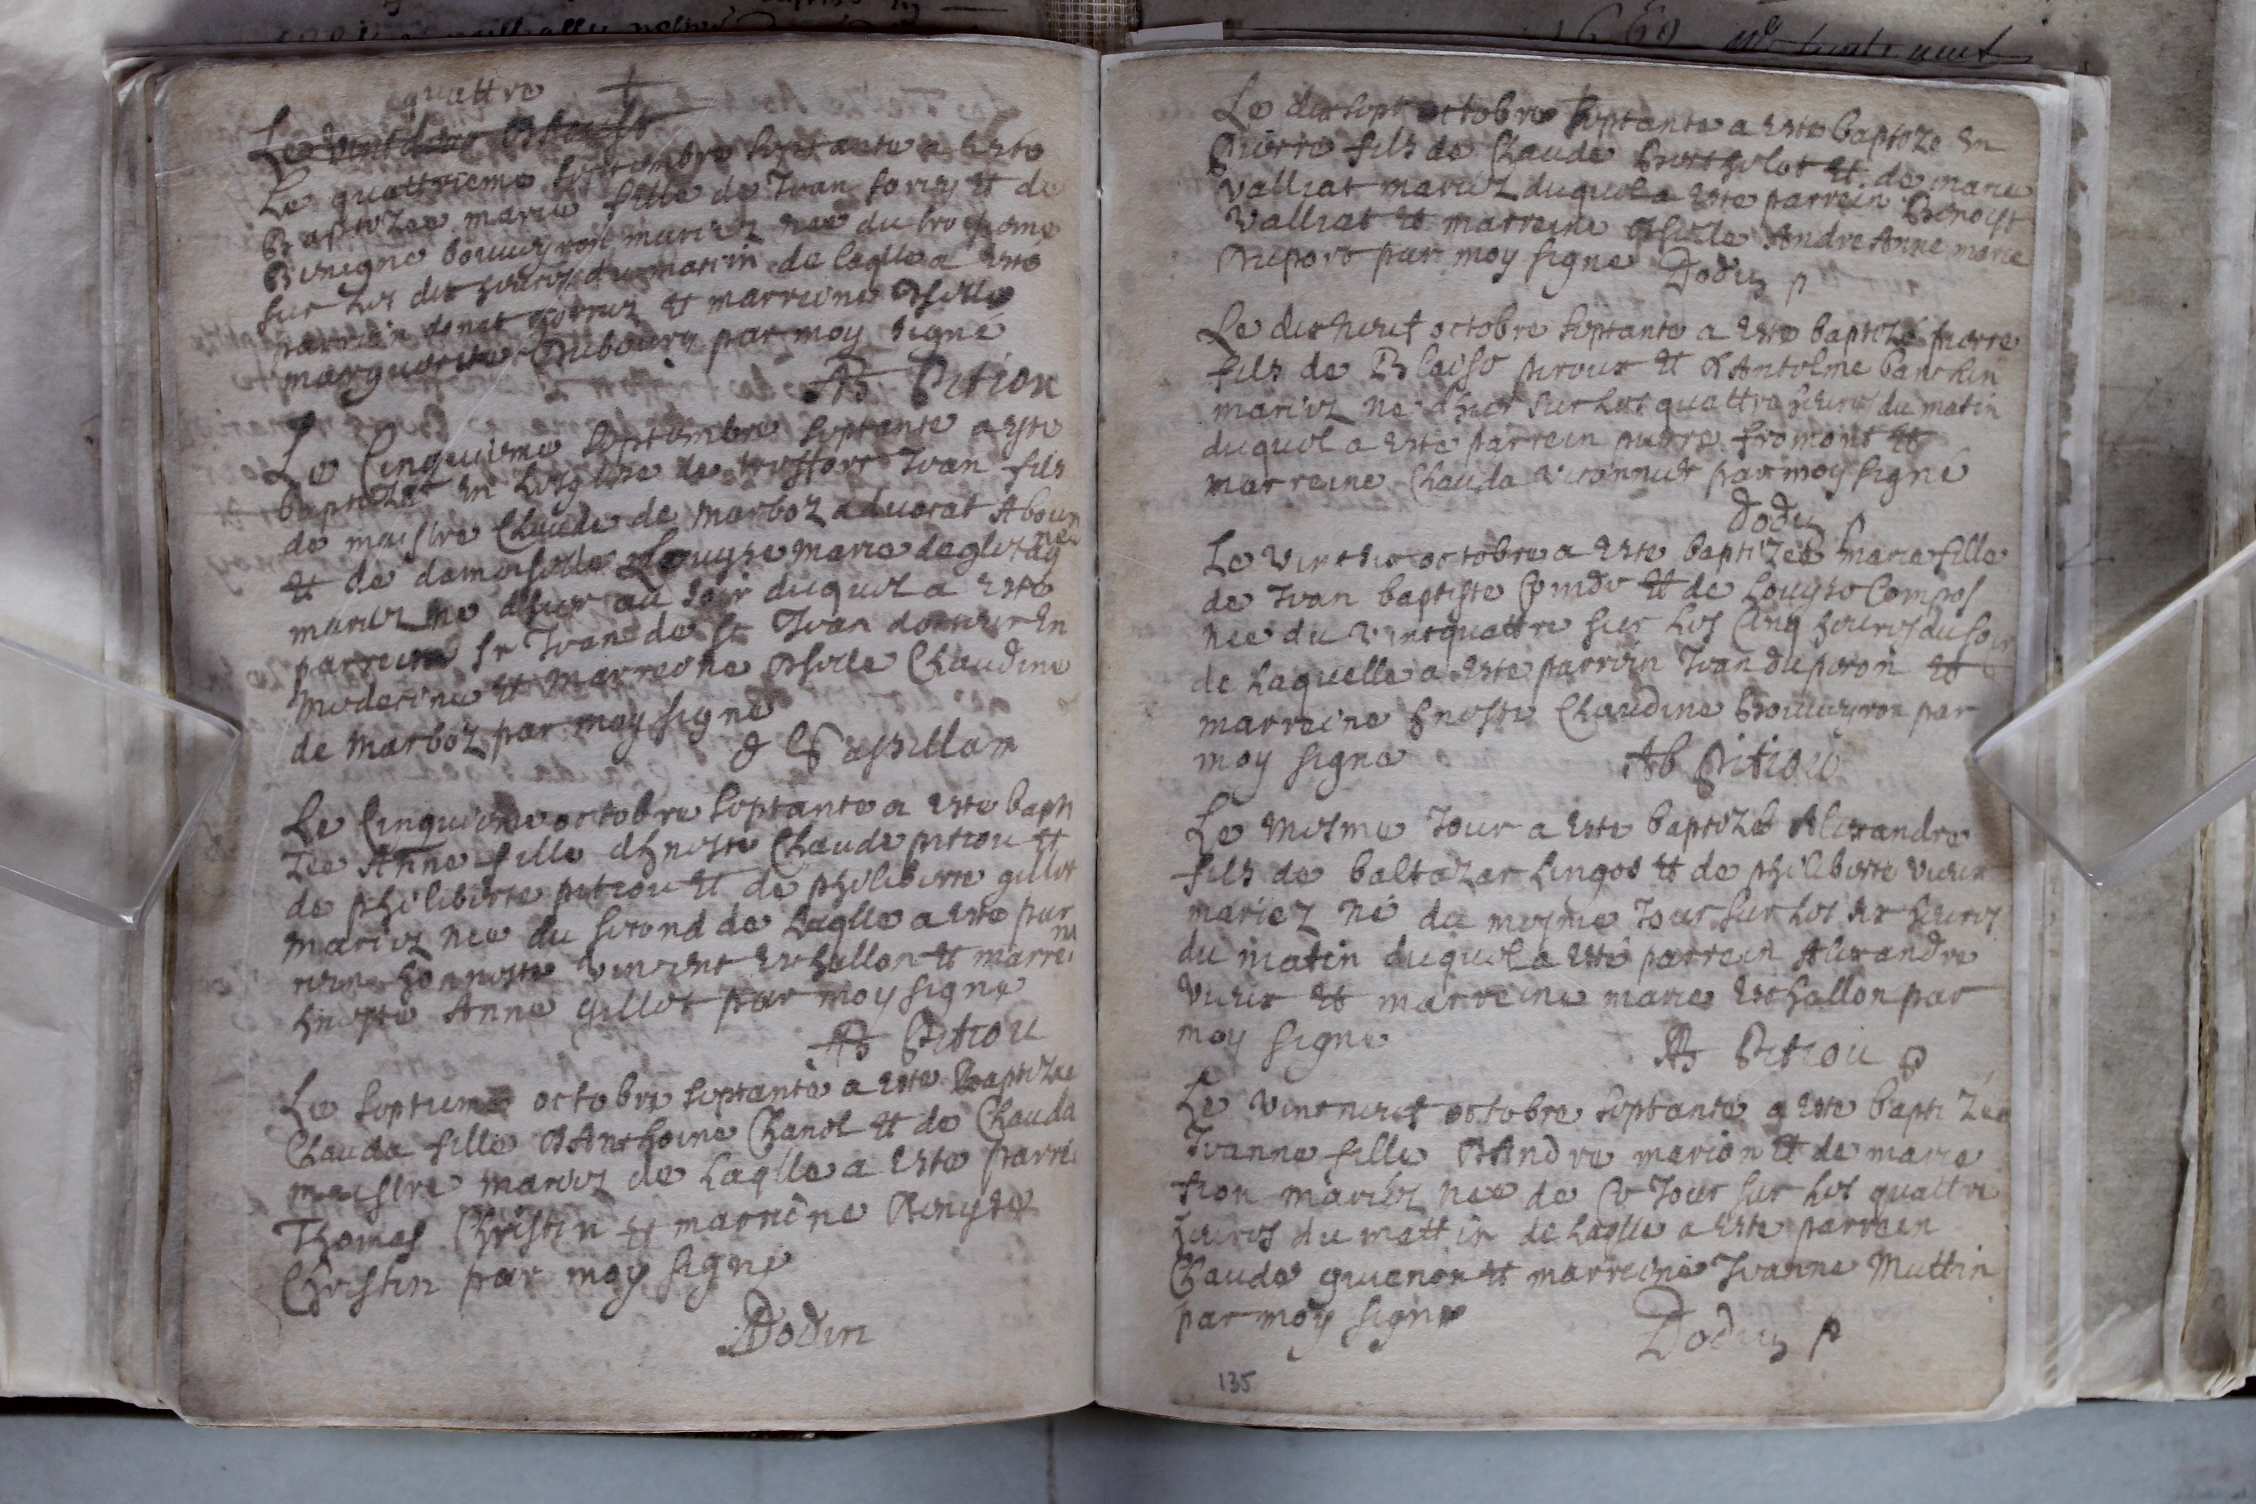 quattre
Le
Le quattrieme septembre septante a este
Baptizee marie fille de Jean et de
Benigne bouuyron mariez nee du
sur les dix heures du matin de laqlle a este
parrein donat et marreine
marguerite par moy signé
AB Petiou
Le Cinquieme septembre septante a este
baptizet en lesglise de treffort Jean fils
de maistre Claude de Marboz aduocat A bourg
et de damoiselle Louyse Marie
mariez ne dhier au soir duquel a este
parrein sr Jean de St Jean docteur en
medecine et Marreine Claudine
de Marboz par moy signé
Le Cinquieme octobre septante a este bapti
zee Anne fille dhneste Claude petiou et
de philiberte petiou et de philiberte gillet
mariez nee du second de laqlle a este par
rein honneste Vincent Eschallon et marrei
ne
hneste Anne gillet par moy signé
AB Petiou
Le septieme octobre septante a este Baptizee
Clauda fille dAnthoine Chanel et de Clauda
maistre mariez de laqlle a este parrei
Thomas Christin et marreine Benyste
Christin par moy signé
Dodin
Le dix sept octobre septante a este baptize en
Pierre fils de Claude Bertholet et de marie
Valliat mariez duquel a este parrein Benoist
Valliat et marreine Andre Anne marie
Duport par moy signe Dodin p
Le dix neuf octobre septante a este baptizé pierre
fils de Blaise peroux et dAntelme
mariez ne dhier sur les quattre heures du matin
duquel a este parrein pierre fromont et
marreine Clauda par moy signé
Dodin p
Le vint six octobre a este baptizée marie fille
de Jean baptiste et de Louyse Compos
nee du vint quattre sur les cinq heures du soir
de laquelle a este parrein Jean duperon et
marreine hneste Claudine Bouuyron par
moy signe AB Petiou
Le mesme Jour a este baptizé Alexandre
fils de baltazar Lingos et de philiberte vieux
mariez né du mesme Jour sur les six heures
du matin duquel a esté parrein Alexandre
vieux et marreine marie Eschallon par
moy signe AB Petiou p
Le vint neuf octobre septante a este baptizée
Jeanne fille dAndre marion et de marie
fion mariez nee de ce Jour sur les quattre
heures du mattin de laqlle a este parrein
Claude guenon et marreine Jeanne Muttin
par moy signe Dodin p
135